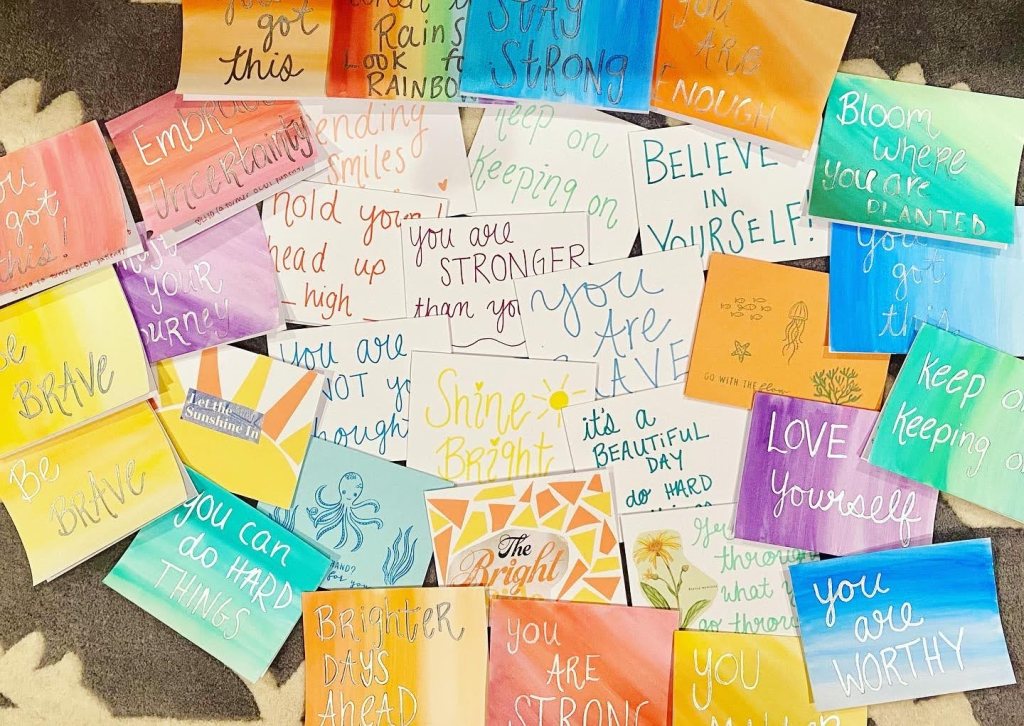 got
this
Rains
Look
RAINBO
STAY
STRONG
YOU
ARE
ENOUGH
Bloom
where
you are
PLANTED
Embrace
Uncertainty
ending
Smiles
Keep on
Keeping on
BELIEVE
IN
YOURSELF!
got
this!
YOUR
hold your
head up
high
you are
STRONGER
than yo
you
Are
got
this
Be
BRAVE
you are
NOT yo
Shine
Bright
GO WITH THE flow
Keep o
Keeping o
Let the
Sunshine In
it's a
BEAUTIFUL
DAY
do HARD
LOVE
Yourself
Be
BRAVE
you can
do HARD
THINGS
HAND?
for you
The
Bright
through
what y
go throu
you
are
WORTHY
BRIGHTER
DAYS
AHEAD
YOU
ARE
STRONG
YOU